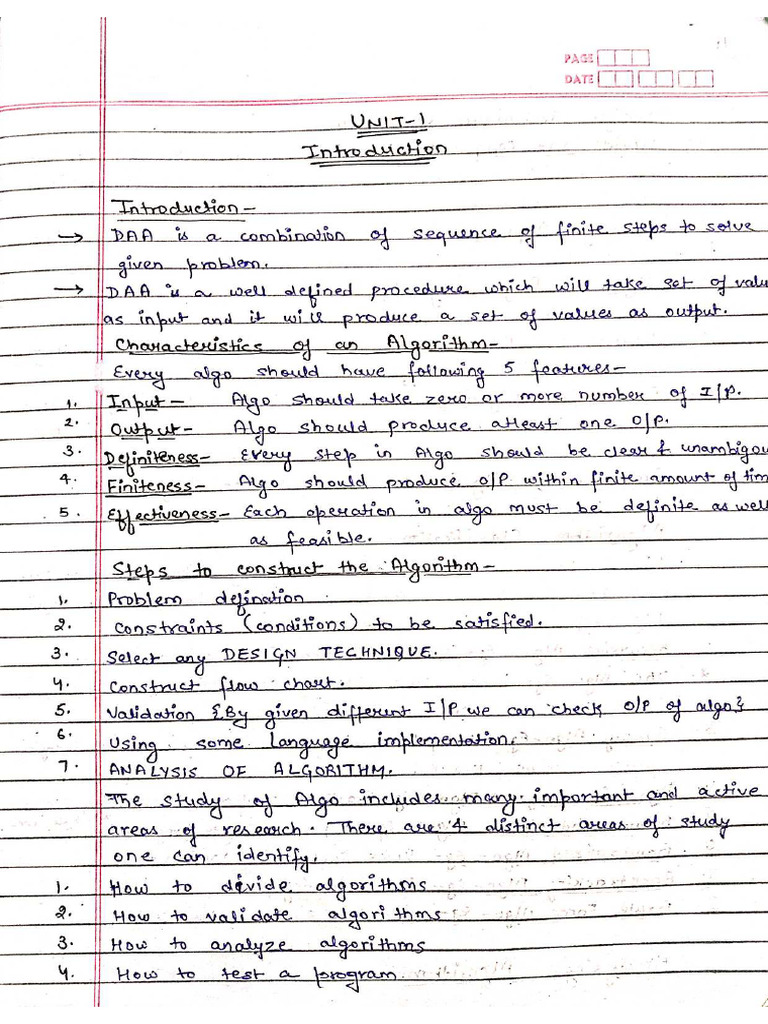 PAGE
DATE
UNIT-1
Introduction
Introduction-
→ DAA is a combination of sequence of finite steps to solve
given problem.
→ DAA is a well defined procedure which will take set of valu
as input and it will produce a set of values as output.
Characteristics of an Algorithm-
Every algo should have following 5 features-
1. Input- Algo should take zero or more number of I/P.
2. Output- Algo should produce atleast one O/P.
3. Definiteness- Every step in Algo should be clear & unambigou
4. Finiteness- Algo should produce O/P within finite amount of tim
5. Effectiveness- Each operation in algo must be definite as well
as feasible.
Steps to construct the Algorithm-
1. Problem defination
2. Constraints (conditions) to be satisfied.
3. Select any DESIGN TECHNIQUE.
4. Construct flow chart.
5. Validation {By given different I/P we can check O/P of algo}
6. Using some language implementation.
7. ANALYSIS OF ALGORITHM.
The study of Algo includes many important and active
areas of research. There are 4 distinct areas of study
one can identify.
1. How to divide algorithms
2. How to validate algorithms
3. How to analyze algorithms
4. How to test a program.